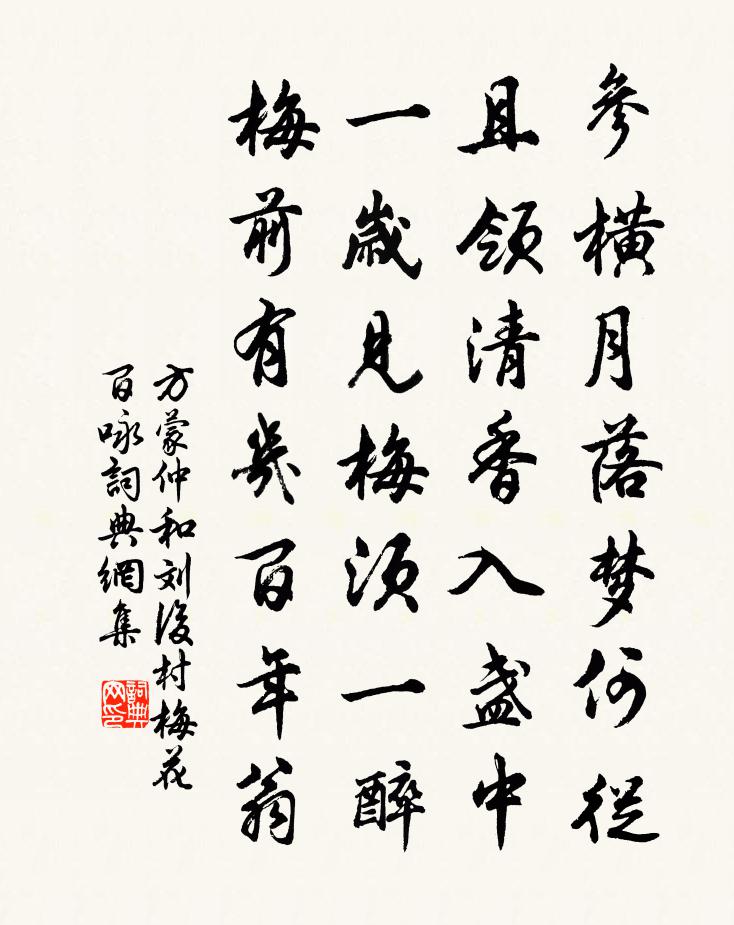 參橫月落梦何從
且領清香入盞中
一歲見梅須一醉
梅前有幾百年翁
方蒙仲和刘後村梅花
百咏詞典網集
詞典
网印